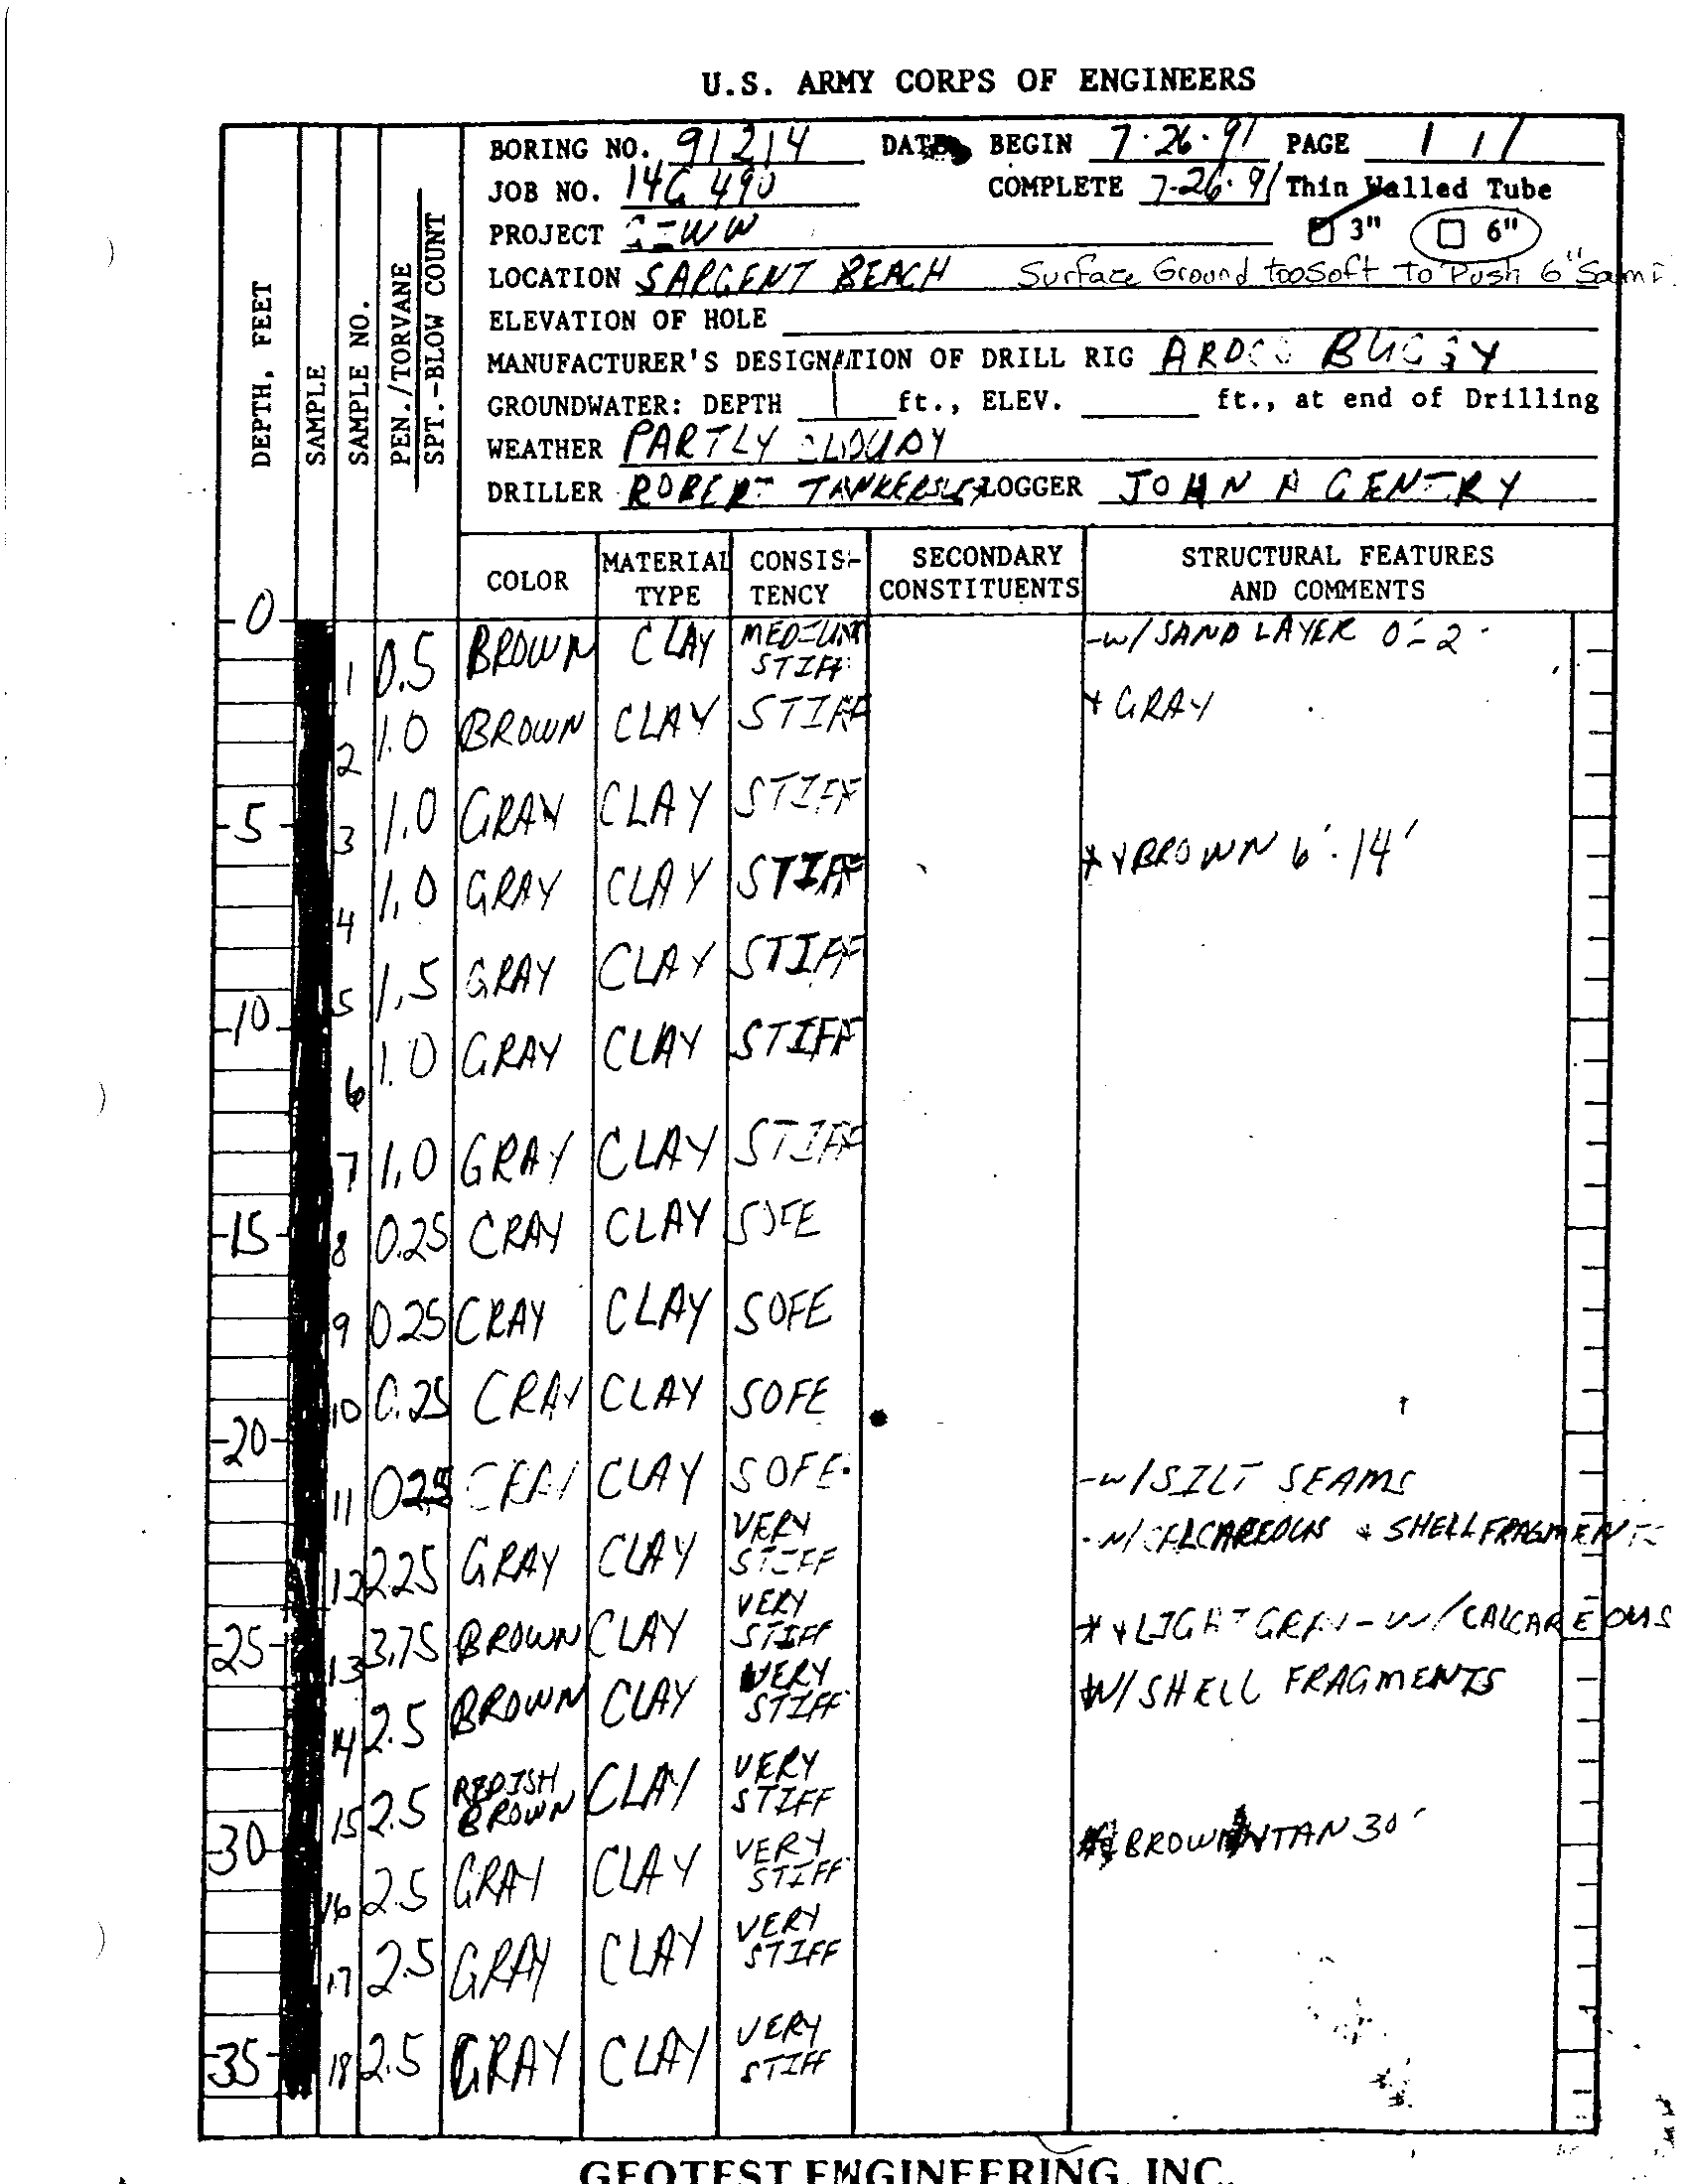 U.S. ARMY CORPS OF ENGINEERS
BORING NO. 91214 DATE BEGIN 7-26-91 PAGE 1 / 1
JOB NO. 14G 490 COMPLETE 7-26-91 Thin Walled Tube
PROJECT GIWW 3" 6"
LOCATION SARGENT BEACH Surface Ground too Soft To Push 6" Samp.
ELEVATION OF HOLE
MANUFACTURER'S DESIGNATION OF DRILL RIG ARDCO BUGGY
GROUNDWATER: DEPTH ft., ELEV. ft., at end of Drilling
WEATHER PARTLY CLOUDY
DRILLER ROBERT TANKERSLEY LOGGER JOHN A GENTRY
DEPTH, FEET
SAMPLE
SAMPLE NO.
PEN./TORVANE
SPT.-BLOW COUNT
COLOR MATERIAL TYPE CONSIS-TENCY SECONDARY CONSTITUENTS STRUCTURAL FEATURES AND COMMENTS
0
1 0.5 BROWN CLAY MEDIUM STIFF -W/SAND LAYER 0'-2'
2 1.0 BROWN CLAY STIFF + GRAY
5 3 1.0 GRAY CLAY STIFF
4 1.0 GRAY CLAY STIFF * + BROWN 6'-14'
5 1.5 GRAY CLAY STIFF
10 6 1.0 GRAY CLAY STIFF
7 1.0 GRAY CLAY STIFF
15 8 0.25 GRAY CLAY SOFE
9 0.25 GRAY CLAY SOFE
10 0.25 GRAY CLAY SOFE
20
11 0.25 GRAY CLAY SOFE -W/SILT SEAMS
12 2.25 GRAY CLAY VERY STIFF -W/CALCAREOUS & SHELL FRAGMENTS
25 13 3.75 BROWN CLAY VERY STIFF * + LIGHT GRAY-W/CALCAREOUS
14 2.5 BROWN CLAY VERY STIFF W/SHELL FRAGMENTS
15 2.5 REDISH BROWN CLAY VERY STIFF
30 BROWN TAN 30'
16 2.5 GRAY CLAY VERY STIFF
17 2.5 GRAY CLAY VERY STIFF
35 18 2.5 GRAY CLAY VERY STIFF
GEOTEST ENGINEERING, INC.